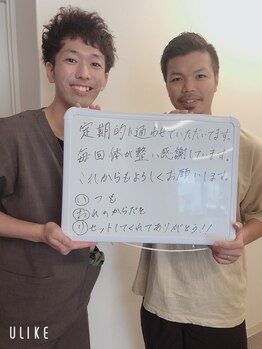 定期的に通わせていただいてます。
毎回体が整い感謝しています。
これからもよろしくお願いします。
①つも
おれのからだを
リセットしてくれてありがとう!!
ULIKE